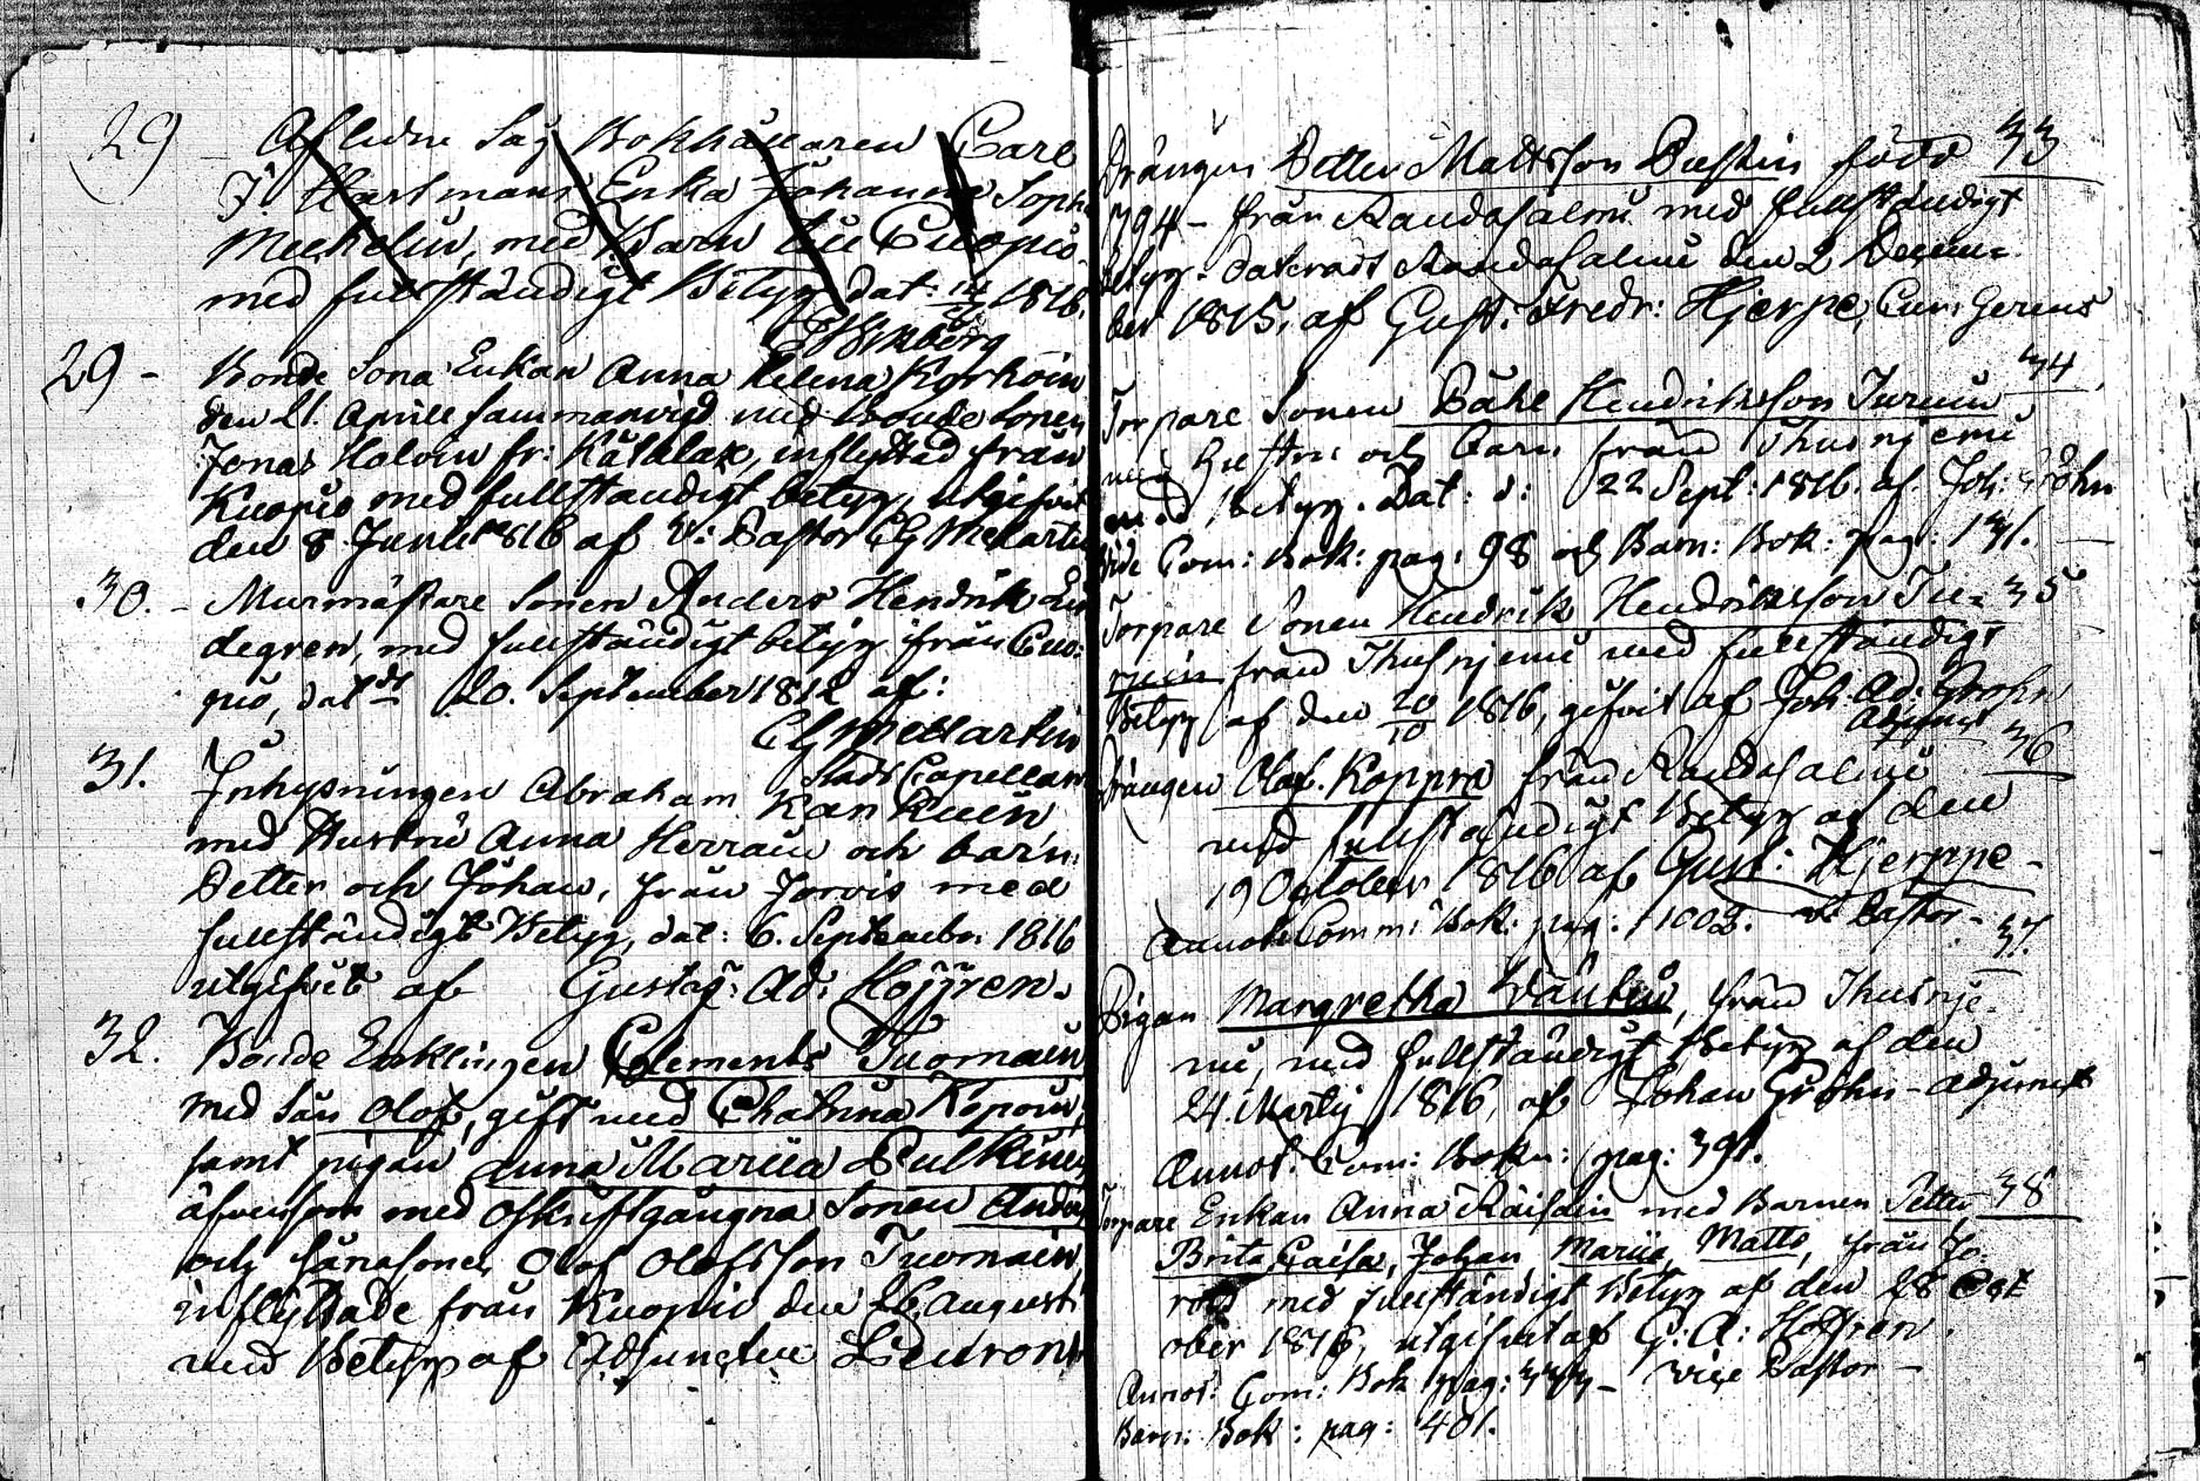 29 - Aflidne Sag Bokhållaren Carl
J. Hartmans Enka Johanna Soph
Mechelin, med Barn till Cuopio
med fullständigt Betyg dat: 1816.
29 - Bonde Sona Enkan Anna Helena Korhoin
den 21. Aprill sammanvigd med bonde sonen
Jonas Holoin fr: Kåtalax, inflyttad från
Kuopio med fullständigt betyg, utgifvit
den 8 Junii 1816 af V: Pastor CG Mellartin
30. - Murmästare Sonen Anders Hendrik Lin
degren, med fullständigt betyg ifrån Cuo:
pio, dat 20. September 1812 af:
CG Mellartin
Stads Capellan
31. Inhysningen Abraham Kankuin
med Hustru Anna Herrain och barn
Petter och Johan, från Jorois med
fullständigt Betyg, dat: 6. September 1816
utgifvit af Gustaf: Ad: Hoffren.
32. Bonde Enklingen Clements Tuomain
med Sån Olof, gift med Chatrina Kopoin,
samt pigan Anna Mariia Pulkinen
äfvensom med oskriftgångna Sonen Anders
och Sånasonen Olof Olofsson Tuomain
inflyttade från Kuopio den 26. Augusti
med Betyg af Adjuncten
Drängen Petter Mattsson Pastin född 33
1794 - från Randasalmi med fullständigt
betyg. dateradt Randasalmi den 2 Decem=
ber 1815, af Gust: Fredr: Hjerpe, Cur: Gerens
34
Torpare Sonen Påhl Hendriksson Turuin
med hustru och barn från Thusnjemi
med betyg. Dat: d: 22 Sept: 1816. af. Joh: Gröhn
Vide Com: Bok: pag: 98 och Barn: Bok: pag: 131.
Torpare Sonen Hendrik Hendriksson Tu= 35
ruin från Thusnjemi med fullständigt
Betyg af den 20/10 1816, gifvit af Joh: Ad: Grohn
Adjunct
36
Drängen Olof. Koppoin från Randasalmi
med fullständigt Betyg af den
19 October 1816 af Gust: Hjerppe -
Annot: Comm: Bok: pag: 1002. V: Pastor -
37.
Pigan Margretha Väntin, från Thusnje
mi, med fullständigt Betyg af den
24. Martij 1816, af Johan Gröhn - Adjunct
Annot: Com: Bokn: pag: 391.
Torpare Enkan Anna Räisäin med Barnen Petter 38
Brita Caisa, Johan, Mariia, Matts, från Jo-
rois med fullständigt Betyg af den 28 Oct
ober 1816, utgifvit af G: A: Hoffren.
Annot: Com: Bok pag: 333 - Vice Pastor -
Barn: Bok: pag: 401.